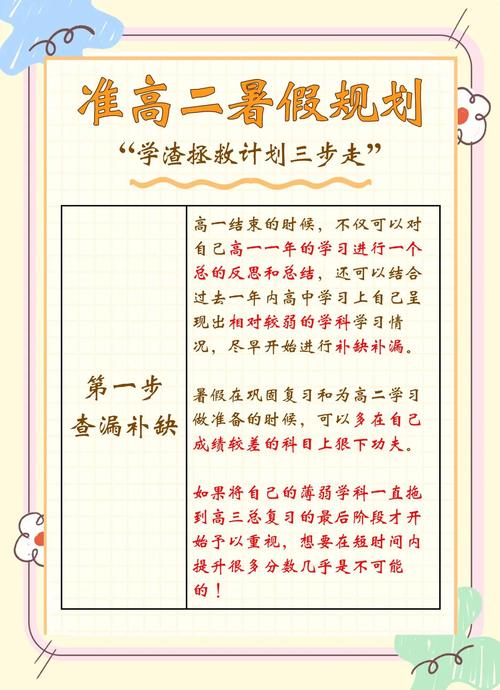 准高二暑假规划
“学渣拯救计划三步走”
第一步
查漏补缺
高一结束的时候，不仅可以对
自己高一一年的学习进行一个
总的反思和总结，还可以结合
过去一年内高中学习上自己呈
现出相对较弱的学科学习情
况，尽早开始进行补缺补漏。
暑假在巩固复习和为高二学习
做准备的时候，可以多在自己
成绩较差的科目上狠下功夫。
如果将自己的薄弱学科一直拖
到高三总复习的最后阶段才开
始予以重视，想要在短时间内
提升很多分数几乎是不可能
的！